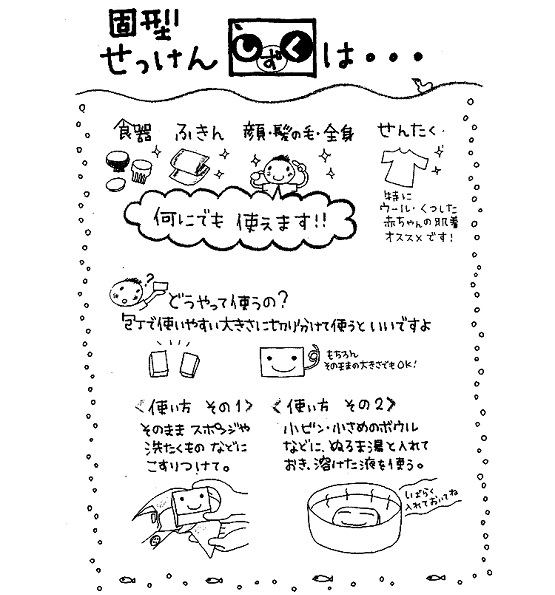 固型
せっけん しずく は・・・
食器 ふきん 顔・髪の毛・全身 せんたく
特に
ウール・くつした
赤ちゃんの肌着
オススメです!
何にでも 使えます!!
?
どうやって使うの?
包丁で使いやすい大きさに切り分けて使うといいですよ
もちろん
そのままの大きさでもOK!
《使い方 その1》
そのまま スポンジや
洗たくもの などに
こすりつけて。
《使い方 その2》
小ビン・小さめのボウル
などに、ぬるま湯と入れて
おき、溶けた液を使う。
しばらく
入れておいてね